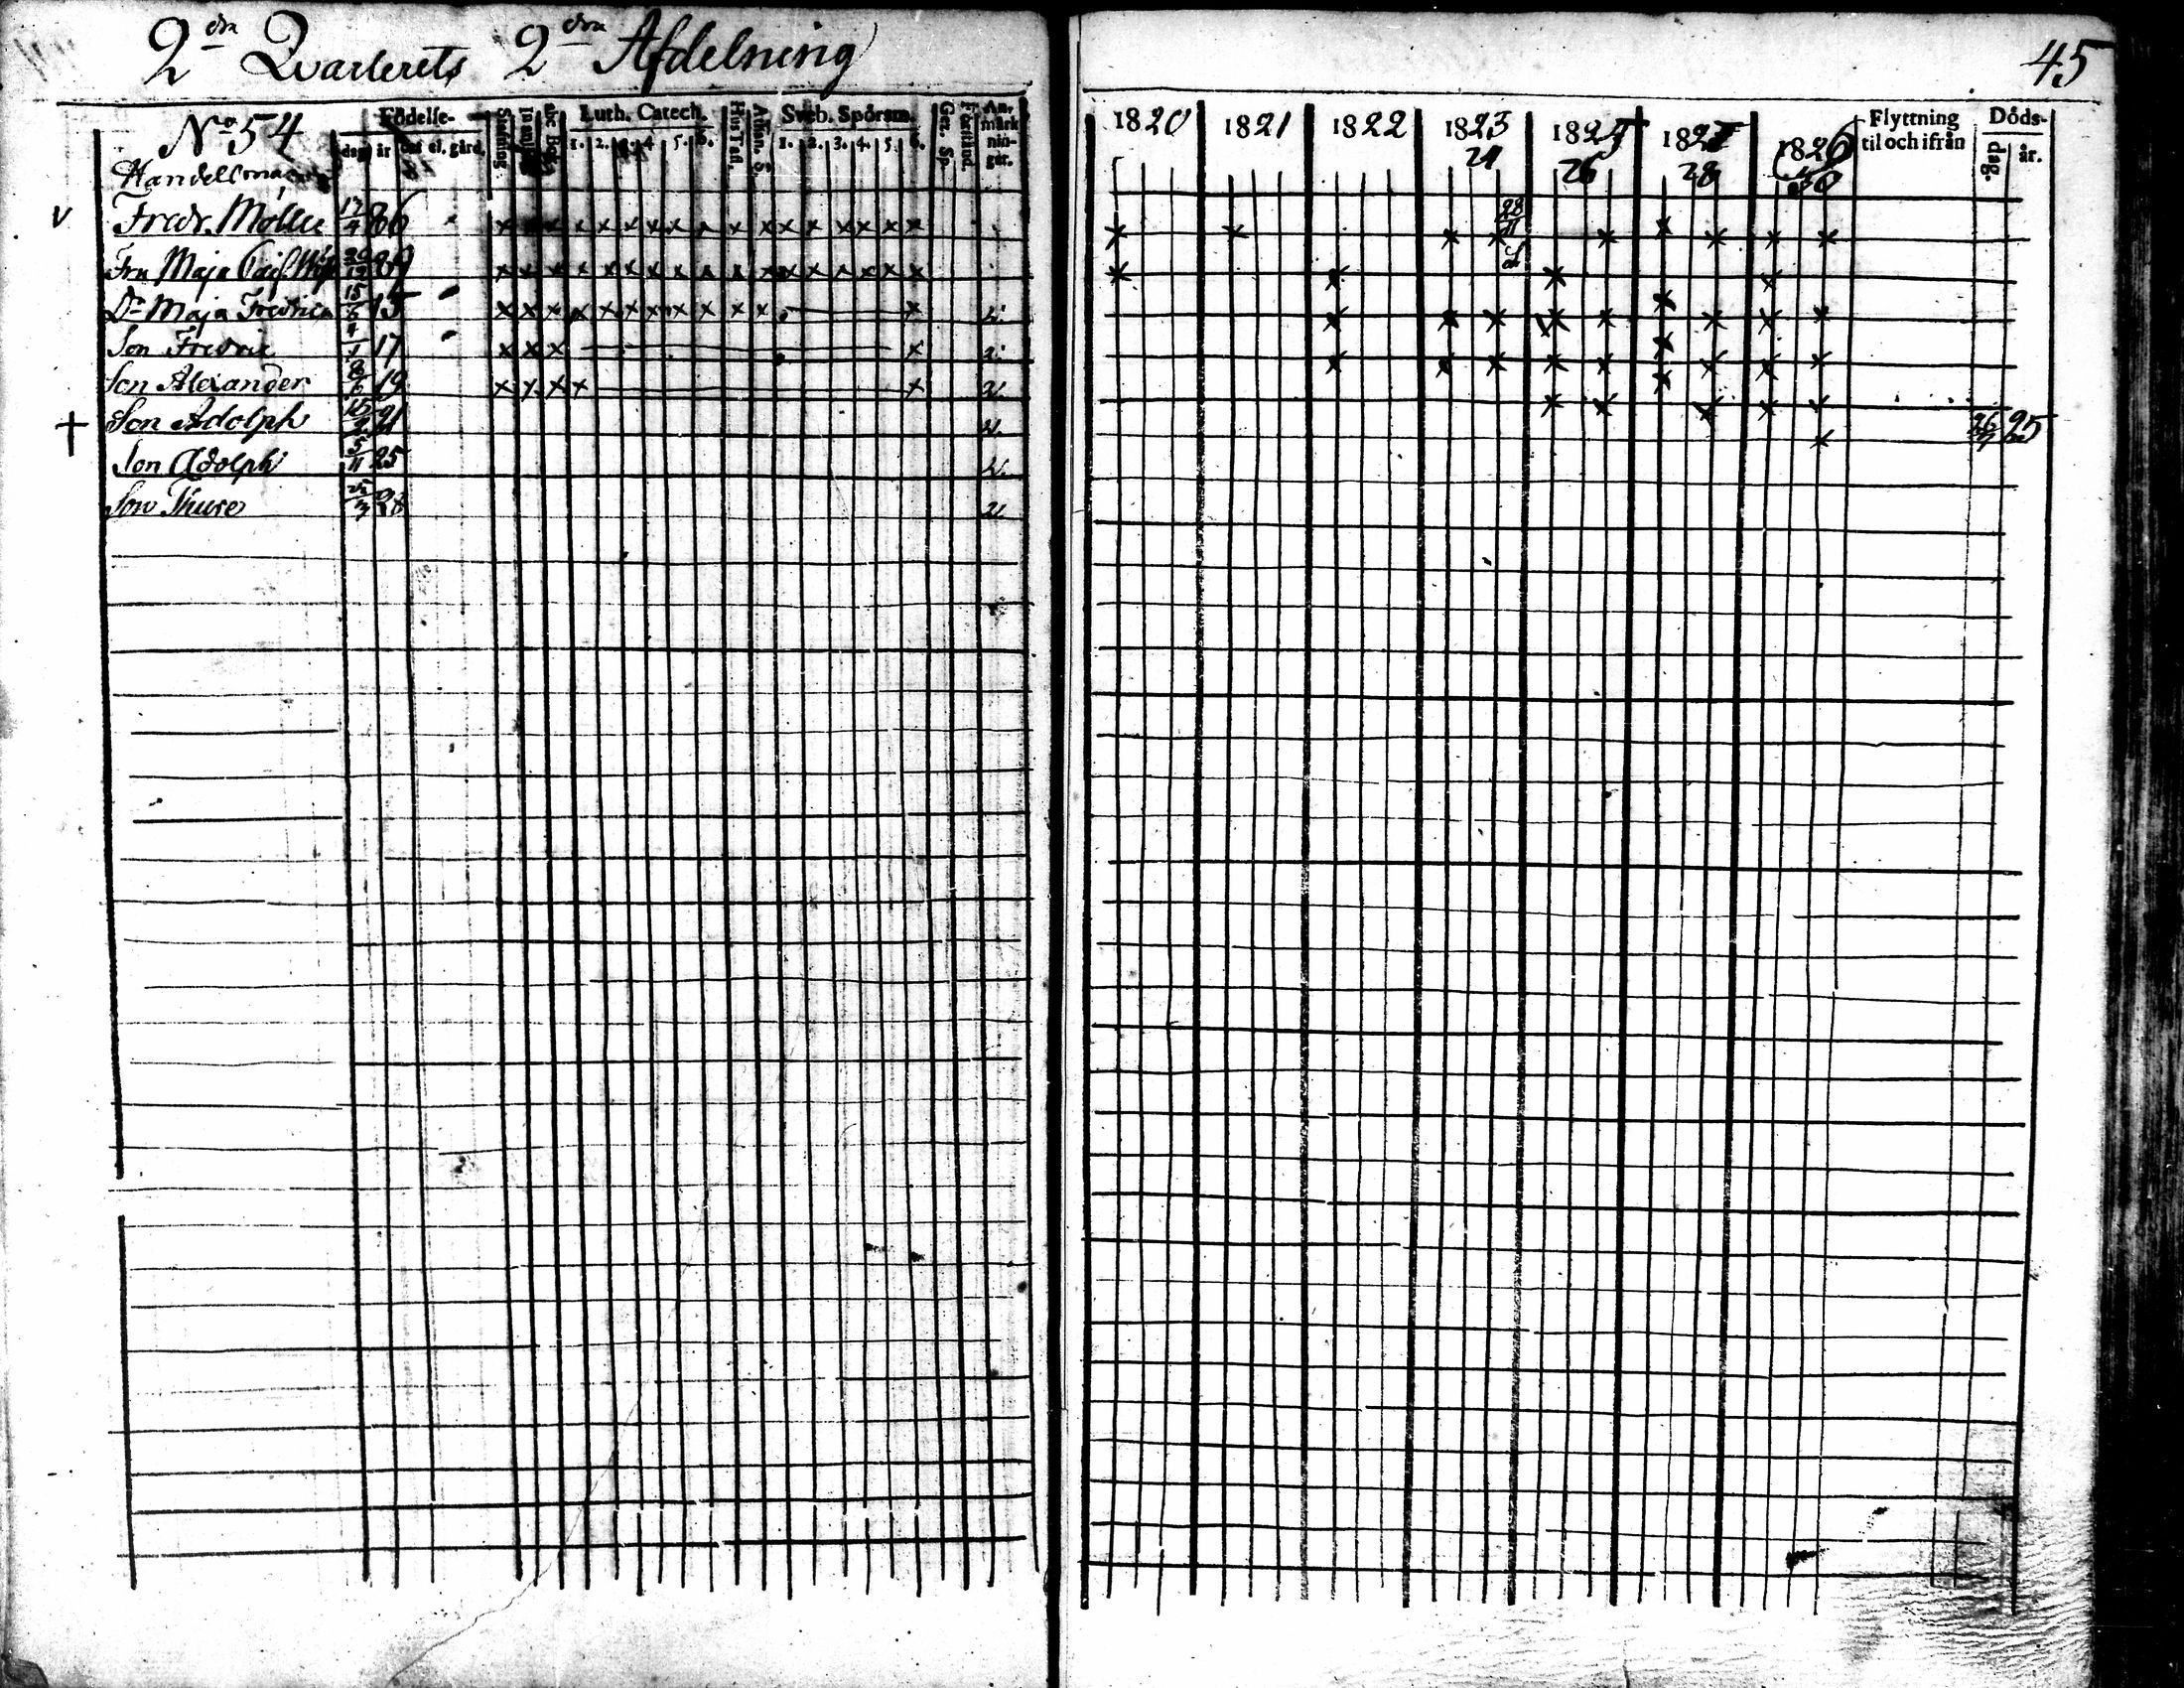 2dra Qvarterets 2dra Afdelning
45
No 54
Födelse-
dag år ort el. gård.
Luth. Catech.
1. 2. 3. 4 5. 6.
Hus Tafl.
Athan. S.
Sveb. Spörsm.
1. 2. 3. 4. 5. 6.
Ger. Sp.
Förstånd.
An-märk-nin-gar.
1820 1821 1822 1823 24 182 26 182 28 1826 30
Flyttning til och ifrån
Döds-
dag. år.
Handelsman
v Fredr. Möller 17/4 86 28/11
Fru Maja 89
Dr Maja Fredrica 15/6 15
Son Fredric 4/1 17
Son Alexander 8/6 19
† Son Adolph 21 26/7 25
Son Adolph 5/11 25
Son Thure 28